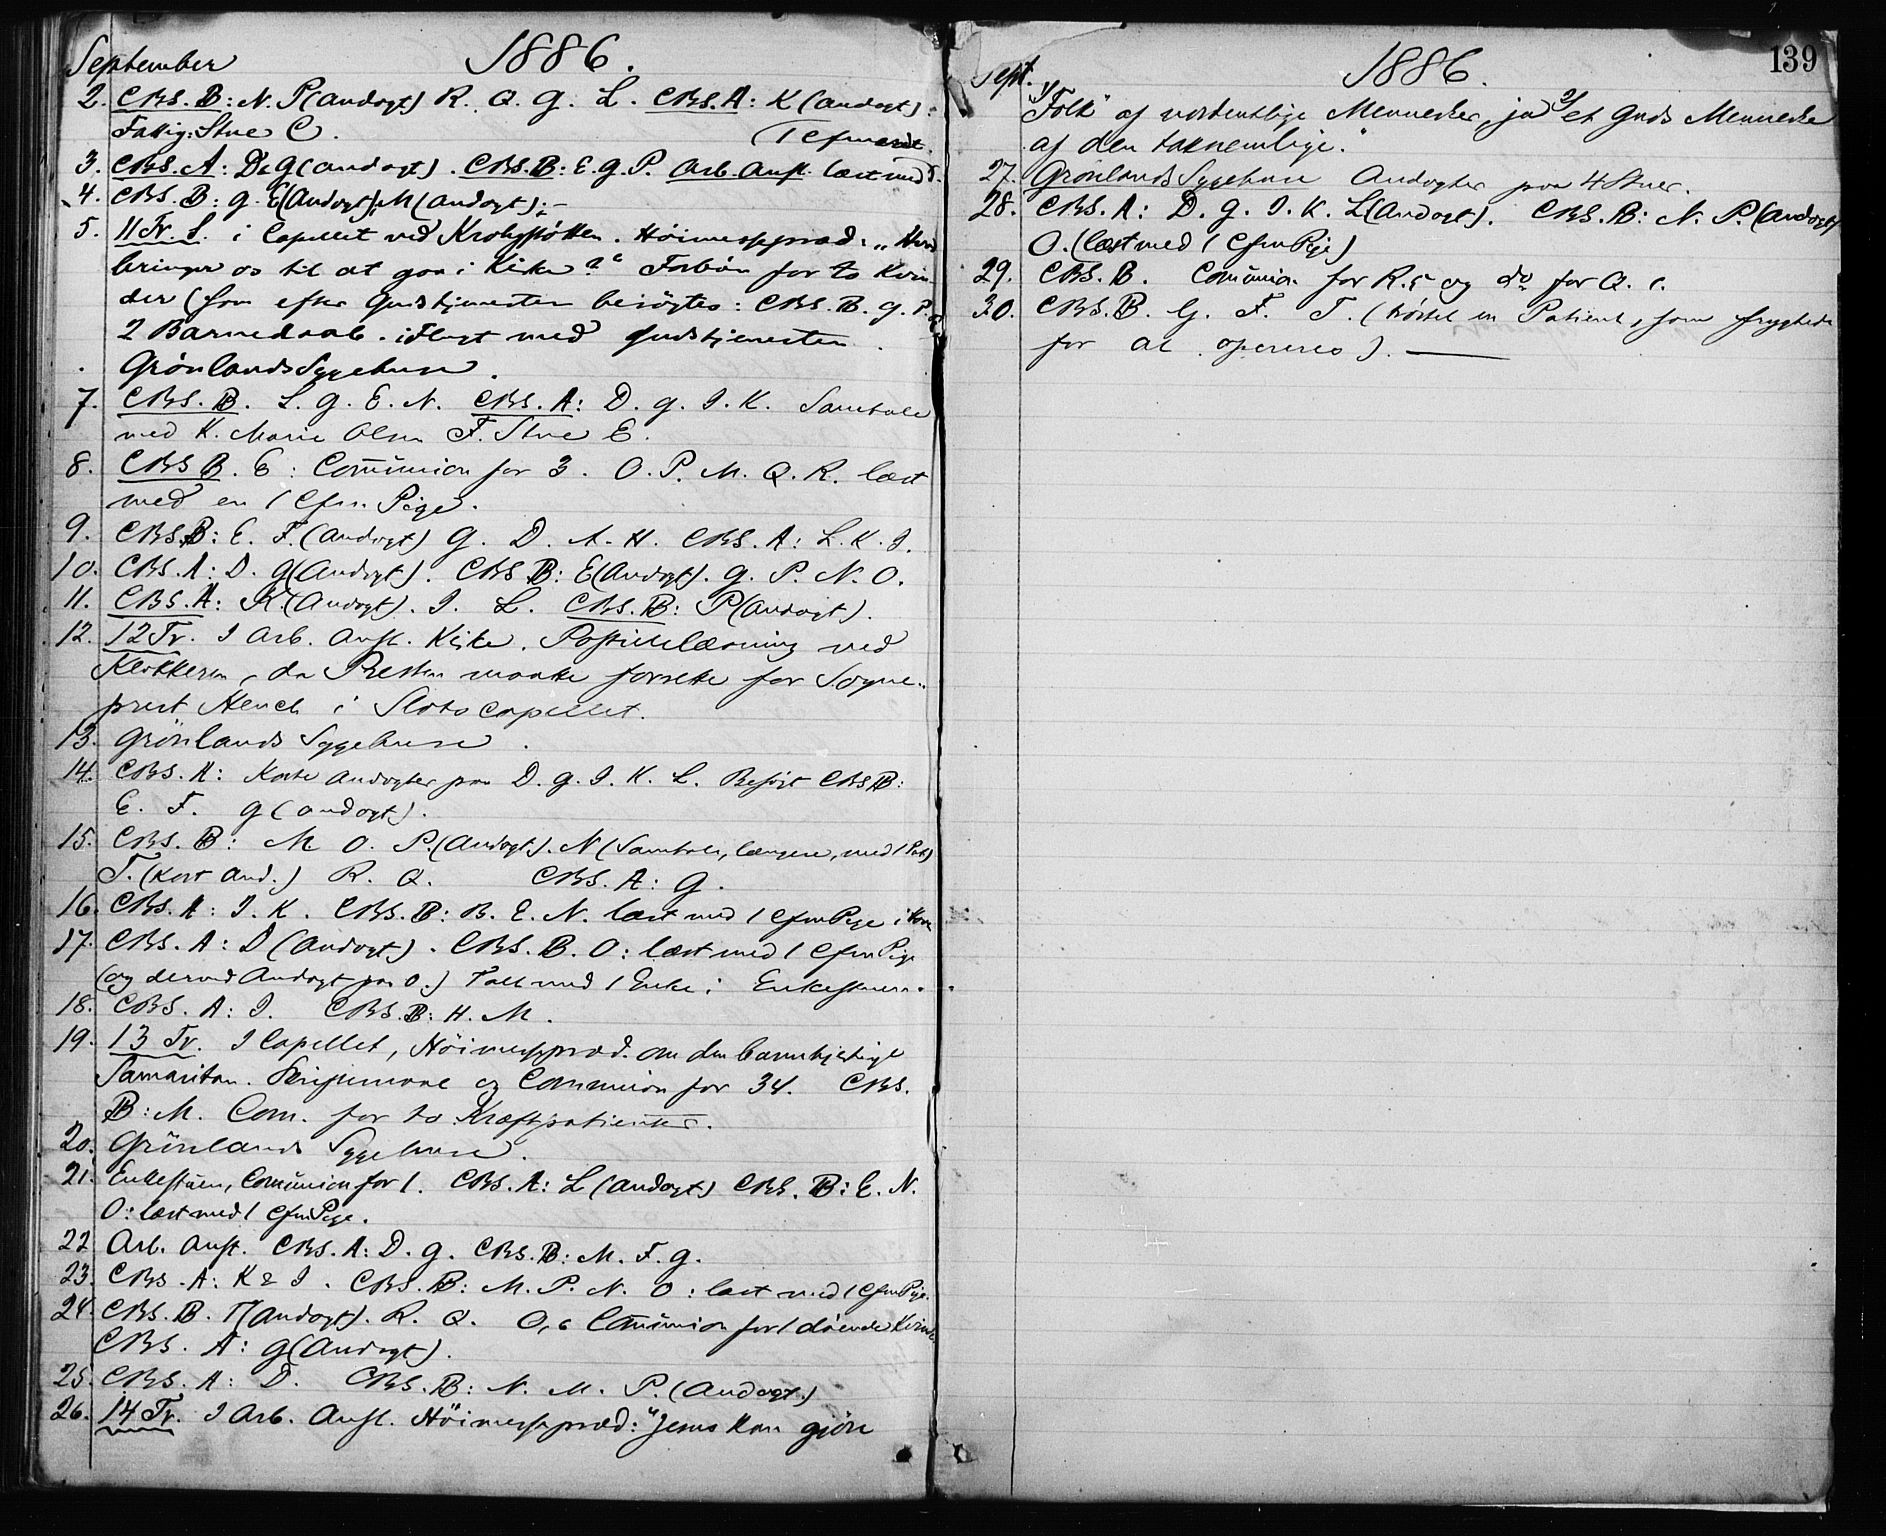 September 1886.
2. CBS. B: N. P (Andagt) R. Q. G. L. CBS. A: K (Andagt).
Fattig: Stue C. (1 Cfmand.
3. CBS. A: D & G (Andagt). CBS. B: E. G. P. Arb. Anst. læst med
4. CBS. B: G. E (Andagt), M (Andagt);
5. 11 Tr. S. i Capellet ved Krohgstøtten. Høimessepræd: "Hvad
bringer os til at gaa i Kirke?" Forbøn for to Kvin-
der (som efter Gudstjenesten besøgtes: CBS. B. G. P.
2 Barnedaab. idligt med Gudstjenesten.
Grønlands Sygehuse.
7. CBS. B. L. G. E. N. CBS. A: D. G. I. K. Samtale
med K. Marie Olsen F. Stue E.
8. CBS B. E: Communion for 3. O. P. M. Q. R. læst
med en 1 Cfm. Pige.
9. CBS. B: E. F. (Andagt) G. D. A. H. CBS. A: L. K. I.
10. CBS. A: D. G (Andagt). CBS B: E (Andagt). G. P. N. O.
11. CBS. A: K. (Andagt). I. L. CBS. B: P (Andagt).
12. 12 Tr. I Arb. Anst. Kirke. Postillelæsning ved
Klokkeren, da Presten maatte forrette for Sogne-
prest Heuch i Slotscapellet.
13. Grønlands Sygehuse.
14. CBS. A: Korte Andagter paa D. G. I. K. L. Besøgt CBS B:
E. F. G (Andagt).
15. CBS. B: M O. P. (Andagt). N (Samtale, længere, med 1 Pat)
T. (Kort And.) R. Q. CBS. A: G.
16. CBS. A: I. K. CBS. B: B. E. N. læst med 1 CfmPige i
17. CBS. A: D (Andagt). CBS. B. O: læst med 1 Cfm Pige
(og derved Andagt paa O.) Talt med 1 Enke i Enkestuen.
18. CBS. A: I. CBS. B: H. M.
19. 13 Tr. I Capellet, Høimessepræd. om den barmhjertige
Samaritan. Skriftemaal og Communion for 34. CBS.
B: M. Com. for to Kræftpatienter.
20. Grønlands Sygehuse.
21. Enkestuen, Communion for 1. CBS. A: L (Andagt) CBS. B: E. N.
O: læst med 1 CfmPige.
22 Arb. Anst. CBS. A: D. G. CBS. B: M. F. G.
23. CBS. A: K & I. CBS. B: M. P. N. O: læst med 1 CfmPige.
24. CBS. B. P (Andagt). R. Q. O, Communion for 1 døende Kvinde
CBS. A: G (Andagt).
25. CBS. A: D. CBS. B: N. M. P. (Andagt)
26. 14 Tr. I Arb. Anst. Høimessepræd: "Jesus kan gjøre
Sept. 1886. 139
1) "Folk" af uordentlige Mennesker, ja 2) et Guds Menneske
af den taknemlige".
27. Grønlands Sygehuse Andagter paa 4 Stuer.
28. CBS. A: D. G. I. K. L (Andagt). CBS. B: N. P. (Andagt)
O. (læst med 1 CfmPige)
29. CBS. B. Communion for R. 5 og do for Q. 1.
30. CBS. B. G. F. T. (trøstet en Patient, som frygtede
for at opereres).